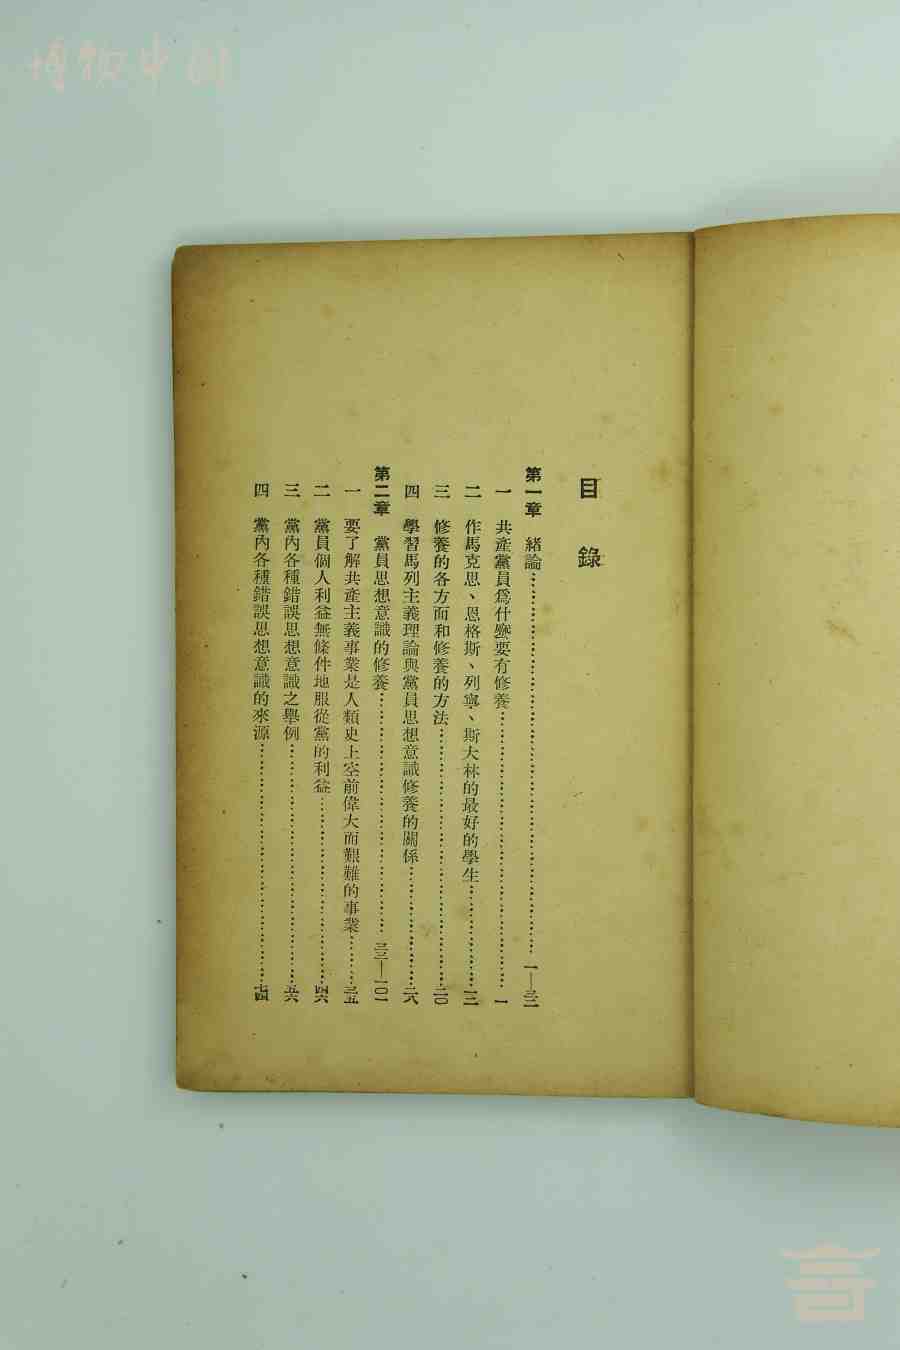 目錄
第一章 緒論……一—三二
一 共產黨員爲什麼要有修養……一
二 作馬克思、恩格斯、列寧、斯大林的最好的學生……一二
三 修養的各方面和修養的方法……二〇
四 學習馬列主義理論與黨員思想意識修養的關係……二八
第二章 黨員思想意識的修養……三三—一〇一
一 要了解共產主義事業是人類史上空前偉大而艱難的事業……三五
二 黨員個人利益無條件地服從黨的利益……四六
三 黨內各種錯誤思想意識之舉例……五六
四 黨內各種錯誤思想意識的來源……七四
博物中國